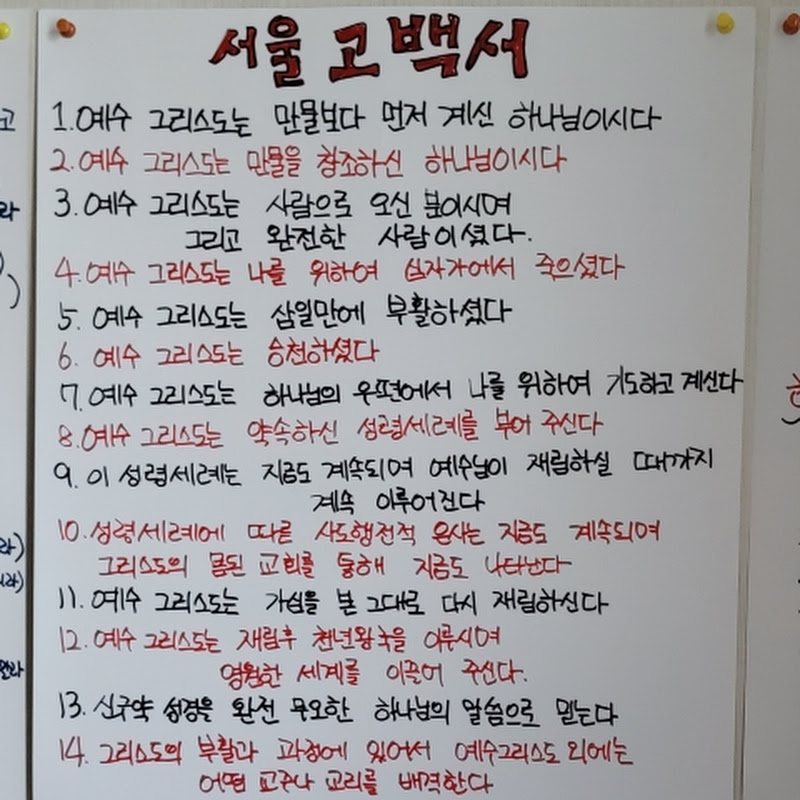 서울 고백서
1. 예수 그리스도는 만물보다 먼저 계신 하나님이시다
2. 예수 그리스도는 만물을 창조하신 하나님이시다
3. 예수 그리스도는 사람으로 오신 분이시며
그리고 완전한 사람이셨다.
4. 예수 그리스도는 나를 위하여 십자가에서 죽으셨다
5. 예수 그리스도는 삼일만에 부활하셨다
6. 예수 그리스도는 승천하셨다
7. 예수 그리스도는 하나님의 우편에서 나를 위하여 기도하고 계신다
8. 예수 그리스도는 약속하신 성령세례를 부어 주신다
9. 이 성령세례는 지금도 계속되며 예수님이 재림하실 때까지
계속 이루어진다
10. 성령세례에 따른 사도행전적 은사는 지금도 계속되며
그리스도의 몸된 교회를 통해 지금도 나타난다
11. 예수 그리스도는 가심을 본 그대로 다시 재림하신다
12. 예수 그리스도는 재림후 천년왕국을 이루시며
영원한 세계를 이끌어 주신다.
13. 신구약 성경을 완전 무오한 하나님의 말씀으로 믿는다
14. 그리스도의 부활과 과정에 있어서 예수그리스도 외에는
어떤 교주나 교리를 배격한다